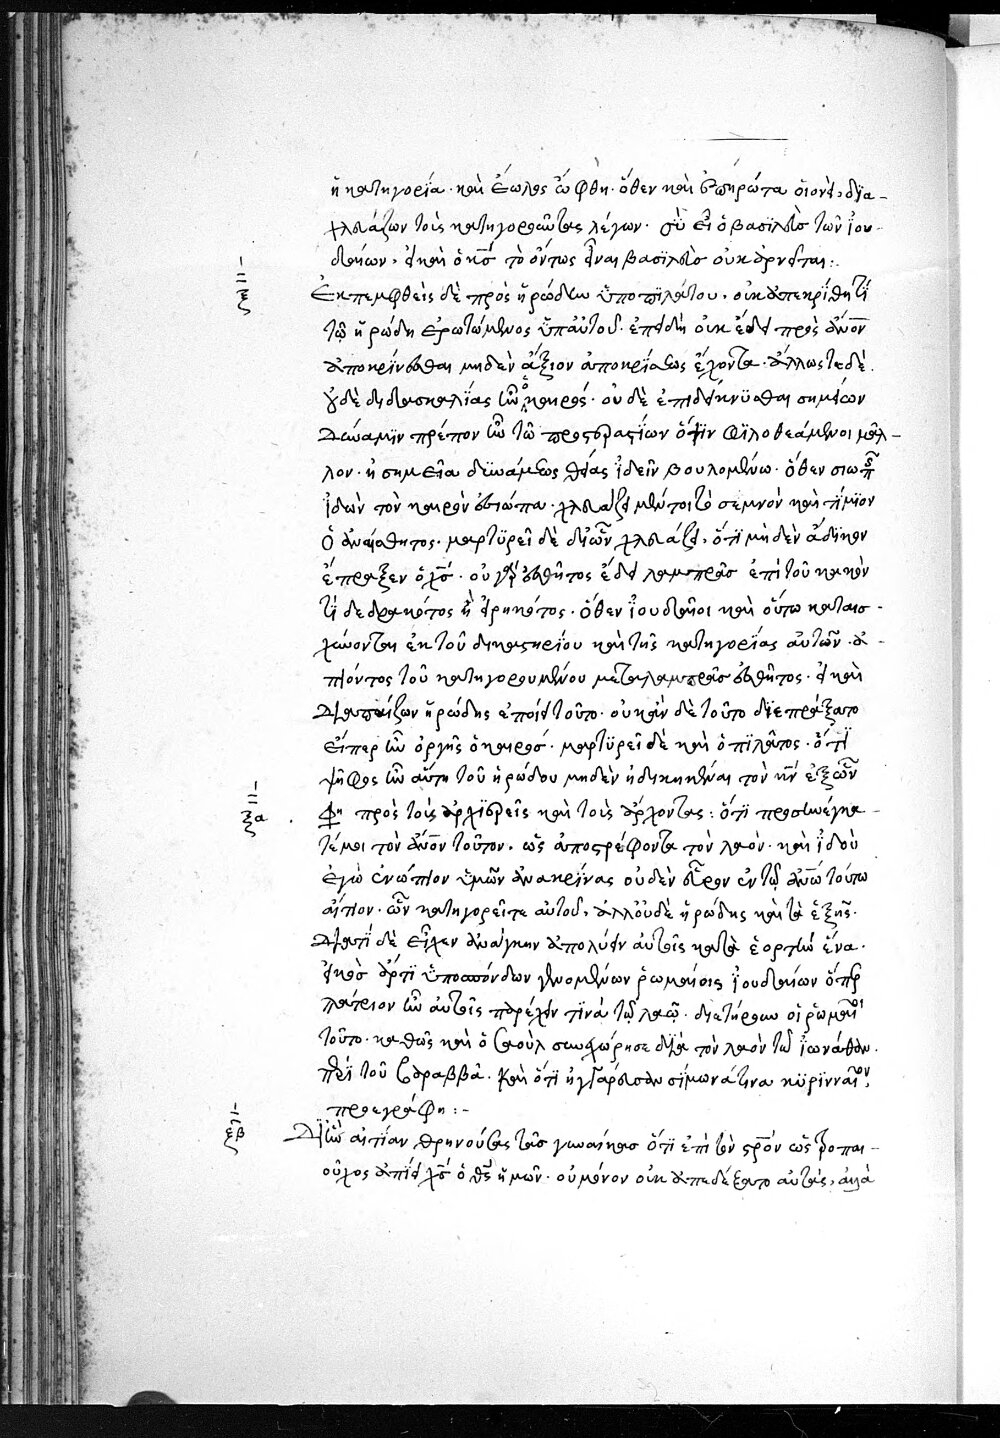 ἡ κατηγορία· καὶ ἕωλος ὤφθη· ὅθεν καὶ ἐπηρώτα οἱονεὶ, δϊα-
χλευάζων τοὺς κατηγοροῦντας λέγων· σὺ εἶ ὁ βασϊλεὺς τῶν ἰου-
δαίων, εἰ καὶ ὁ κ̅ς̅ τὸ ὄντως εἶναι βασϊλεὺς οὐκ ἀρνεῖται:.
ξ
Ἐκπεμφθεὶς δὲ πρὸς ἡρώδην ὑπο πϊλάτου, οὐκ ἀπεκρίθη τϊ
τῶ ἡρώδη ἐρωτώμενος ὑπ αὐτοῦ· ἐπειδὴ οὐκ ἔδει πρὸς ἄν̅ο̅ν̅
ἀποκρίνεσθαι μηδὲν ἄξιον ἀποκρίσεως ἔχοντα· ἄλλως τε δὲ
οὐδὲ διδασκαλίας ἦν ὁ καιρός· οὐδὲ ἐπιδείκνυσθαι σημείων
Δύναμϊν πρέπον ἦν τῶ προστρατίων ὄψϊν φϊλοθεάμενοι μᾶλ-
λον· ἢ σημεῖα δϋνάμεως θείας ἰδεῖν βουλομένω· ὅθεν σιωπῆς
ἰδὼν τὸν καιρὸν ἐσιώπα· χλευάζει μέντοι τὸ σεμνὸν καὶ τίμϊον
Ὁ ἀναίσθητος· μαρτϋρεῖ δὲ δι ὧν χλευάζει, ὅτϊ μηδὲν ἄδϊκον
ἔπραξεν ὁ χ̅ς̅· οὐ γὰρ ἐσθῆτος ἔδει λαμπρᾶς ἐπὶ τοῦ κακόν
τϊ δεδρακότος ἢ εἰρηκότος· ὅθεν ἰουδαῖοι καὶ οὕτω καταισ-
χύνονται ἐκ τοῦ δικαστηρίου καὶ τῆς κατηγορίας αὐτῶν· ἀ-
πιόντος τοῦ κατηγορουμένου μετα λαμπρᾶς ἐσθῆτος· εἰ καὶ
Διαπαίζων ἡρώδης ἐποίει τοῦτο· οὐκ ἂν δὲ τοῦτο δϊεπράξατο
εἴπερ ἦν ὀργῆς ὁ καιρός· μαρτϋρεῖ δὲ καὶ ὁ πϊλᾶτος· ὅτϊ
ψῆφος ἦν αὕτη τοῦ ἡρώδου μηδὲν ἠδικηκέναι τὸν ι̅ν̅ ἐξ ὧν
ξα
φη πρὸς τοὺς ἀρχϊερεῖς καὶ τοὺς ἄρχοντας: ὅτϊ προσηνέγκα-
τέ μοι τὸν ἄν̅ο̅ν̅ τοῦτον, ὡς ἀποστρέφοντα τὸν λαὸν· καὶ ἰδοὺ
ἐγὼ ἐνώπιον ὑμῶν ἀνακρίνας οὐδὲν εὗρον ἐν τῶ ἀν̅ω̅ τούτω
αἴτιον· ὧν κατηγορεῖτε αὐτοῦ, ἀλλ οὐδὲ ἡρώδης καὶ τὰ ἑξῆς·
Διατί δὲ εἶχεν ἀνάγκην ἀπολύειν αὐτοῖς κατὰ ἑορτὴν ἕνα·
εἰκὸς ἄρτϊ ὑποσπόνδων γενομένων ῥωμαίοις ἰουδαίων ὅπερ
πάτριον ἦν αὐτοῖς παρέχειν τϊνὰ τῶ λαῶ· διετήρουν οἱ ῥωμαῖοι
τοῦτο· καθὼς καὶ ὁ σαοὺλ συνεχώρησε δϊὰ τὸν λαὸν τῶ ἰωνάθαν.
περὶ τοῦ βαραββᾶ· Καὶ ὅτϊ ἠγγάρευσαν σίμωνά τινα κϋρϊνναῖον,
προεγράφη:-
ξβ
Δϊ ἣν αἰτίαν θρηνούσας τὰς γυναίκας ὅτϊ ἐπὶ τὸν στ̅ρ̅ο̅ν ὡς τροπαι-
οῦχος ἀπίει χ̅ς̅ ὁ θ̅ς̅ ἡμῶν· οὐ μόνον οὐκ ἀπεδέξατο αὐτὰς, ἀλλὰ